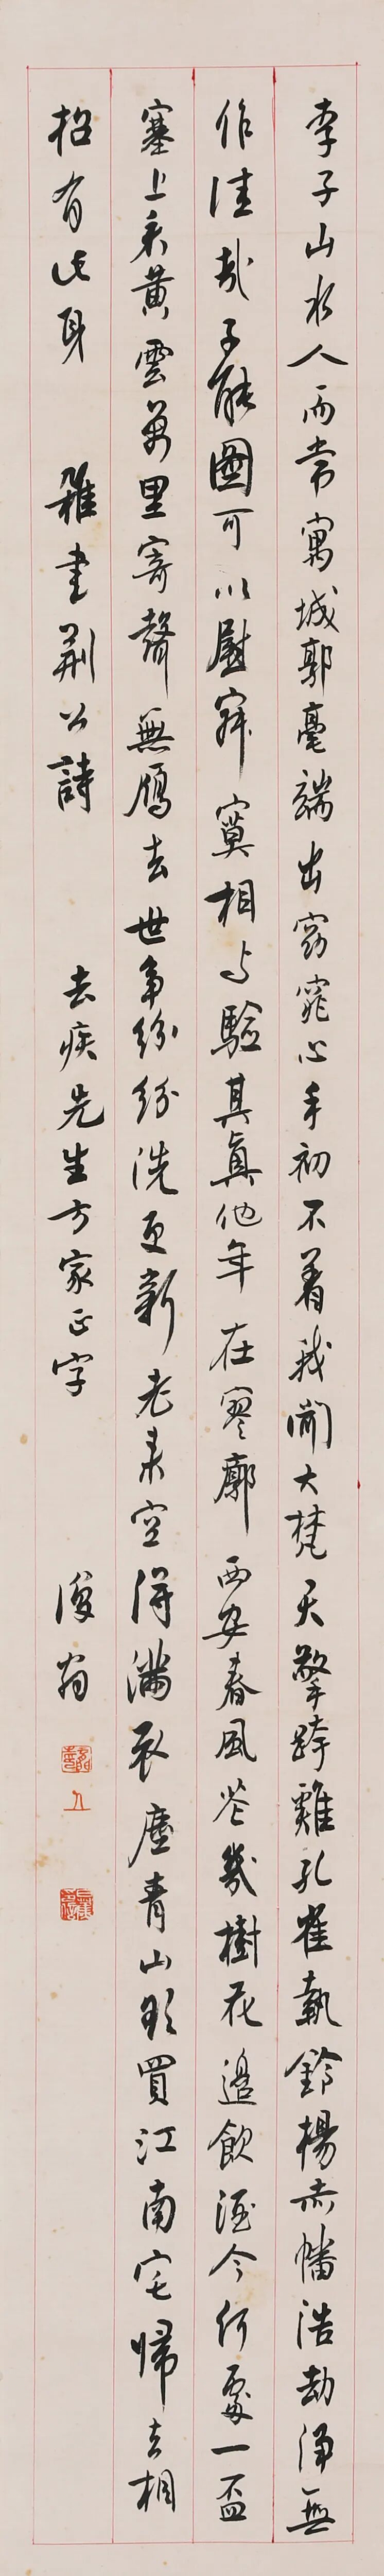 李子山水人而常寓城郭毫端出窈窕心手初不着我聞大梵天擎跨雞孔雀執鈴楊赤幡浩劫淨無
作佳哉子能圖可以慰寂寞相与驗其真他年在寥廓 西安春風花幾樹花邊飲酒今何處一盃
塞上看黃雲萬里寄聲無鴈去世事紛紛洗更新老來空得滿衣塵青山欲買江南宅歸去相
招有此身 雜書荆公詩 去疾先生方家正字